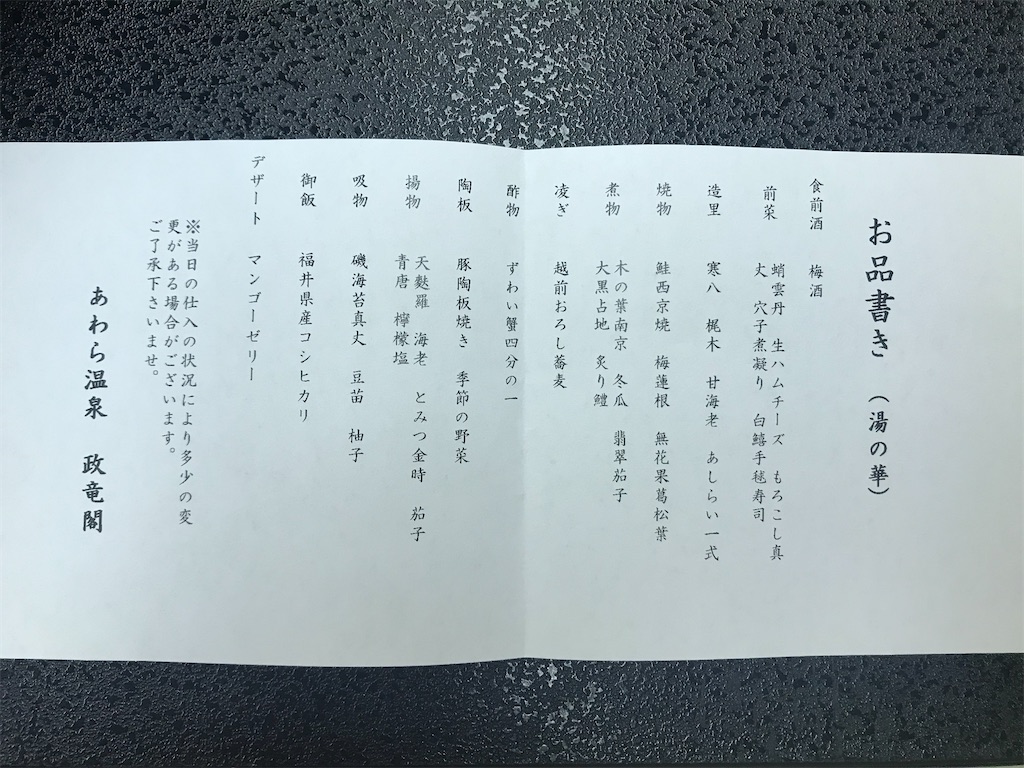 お品書き （湯の華）
食前酒 梅酒
前菜 蛸雲丹 生ハムチーズ もろこし真
丈 穴子煮凝り 白鱚手毬寿司
造里 寒八 梶木 甘海老 あしらい一式
焼物 鮭西京焼 梅蓮根 無花果葛松葉
煮物 木の葉南京 冬瓜 翡翠茄子
大黒占地 炙り鱧
凌ぎ 越前おろし蕎麦
酢物 ずわい蟹四分の一
陶板 豚陶板焼き 季節の野菜
揚物 天麩羅 海老 とみつ金時 茄子
青唐 檸檬塩
吸物 磯海苔真丈 豆苗 柚子
御飯 福井県産コシヒカリ
デザート マンゴーゼリー
※当日の仕入の状況により多少の変
更がある場合がございます。
ご了承下さいませ。
あわら温泉 政竜閣